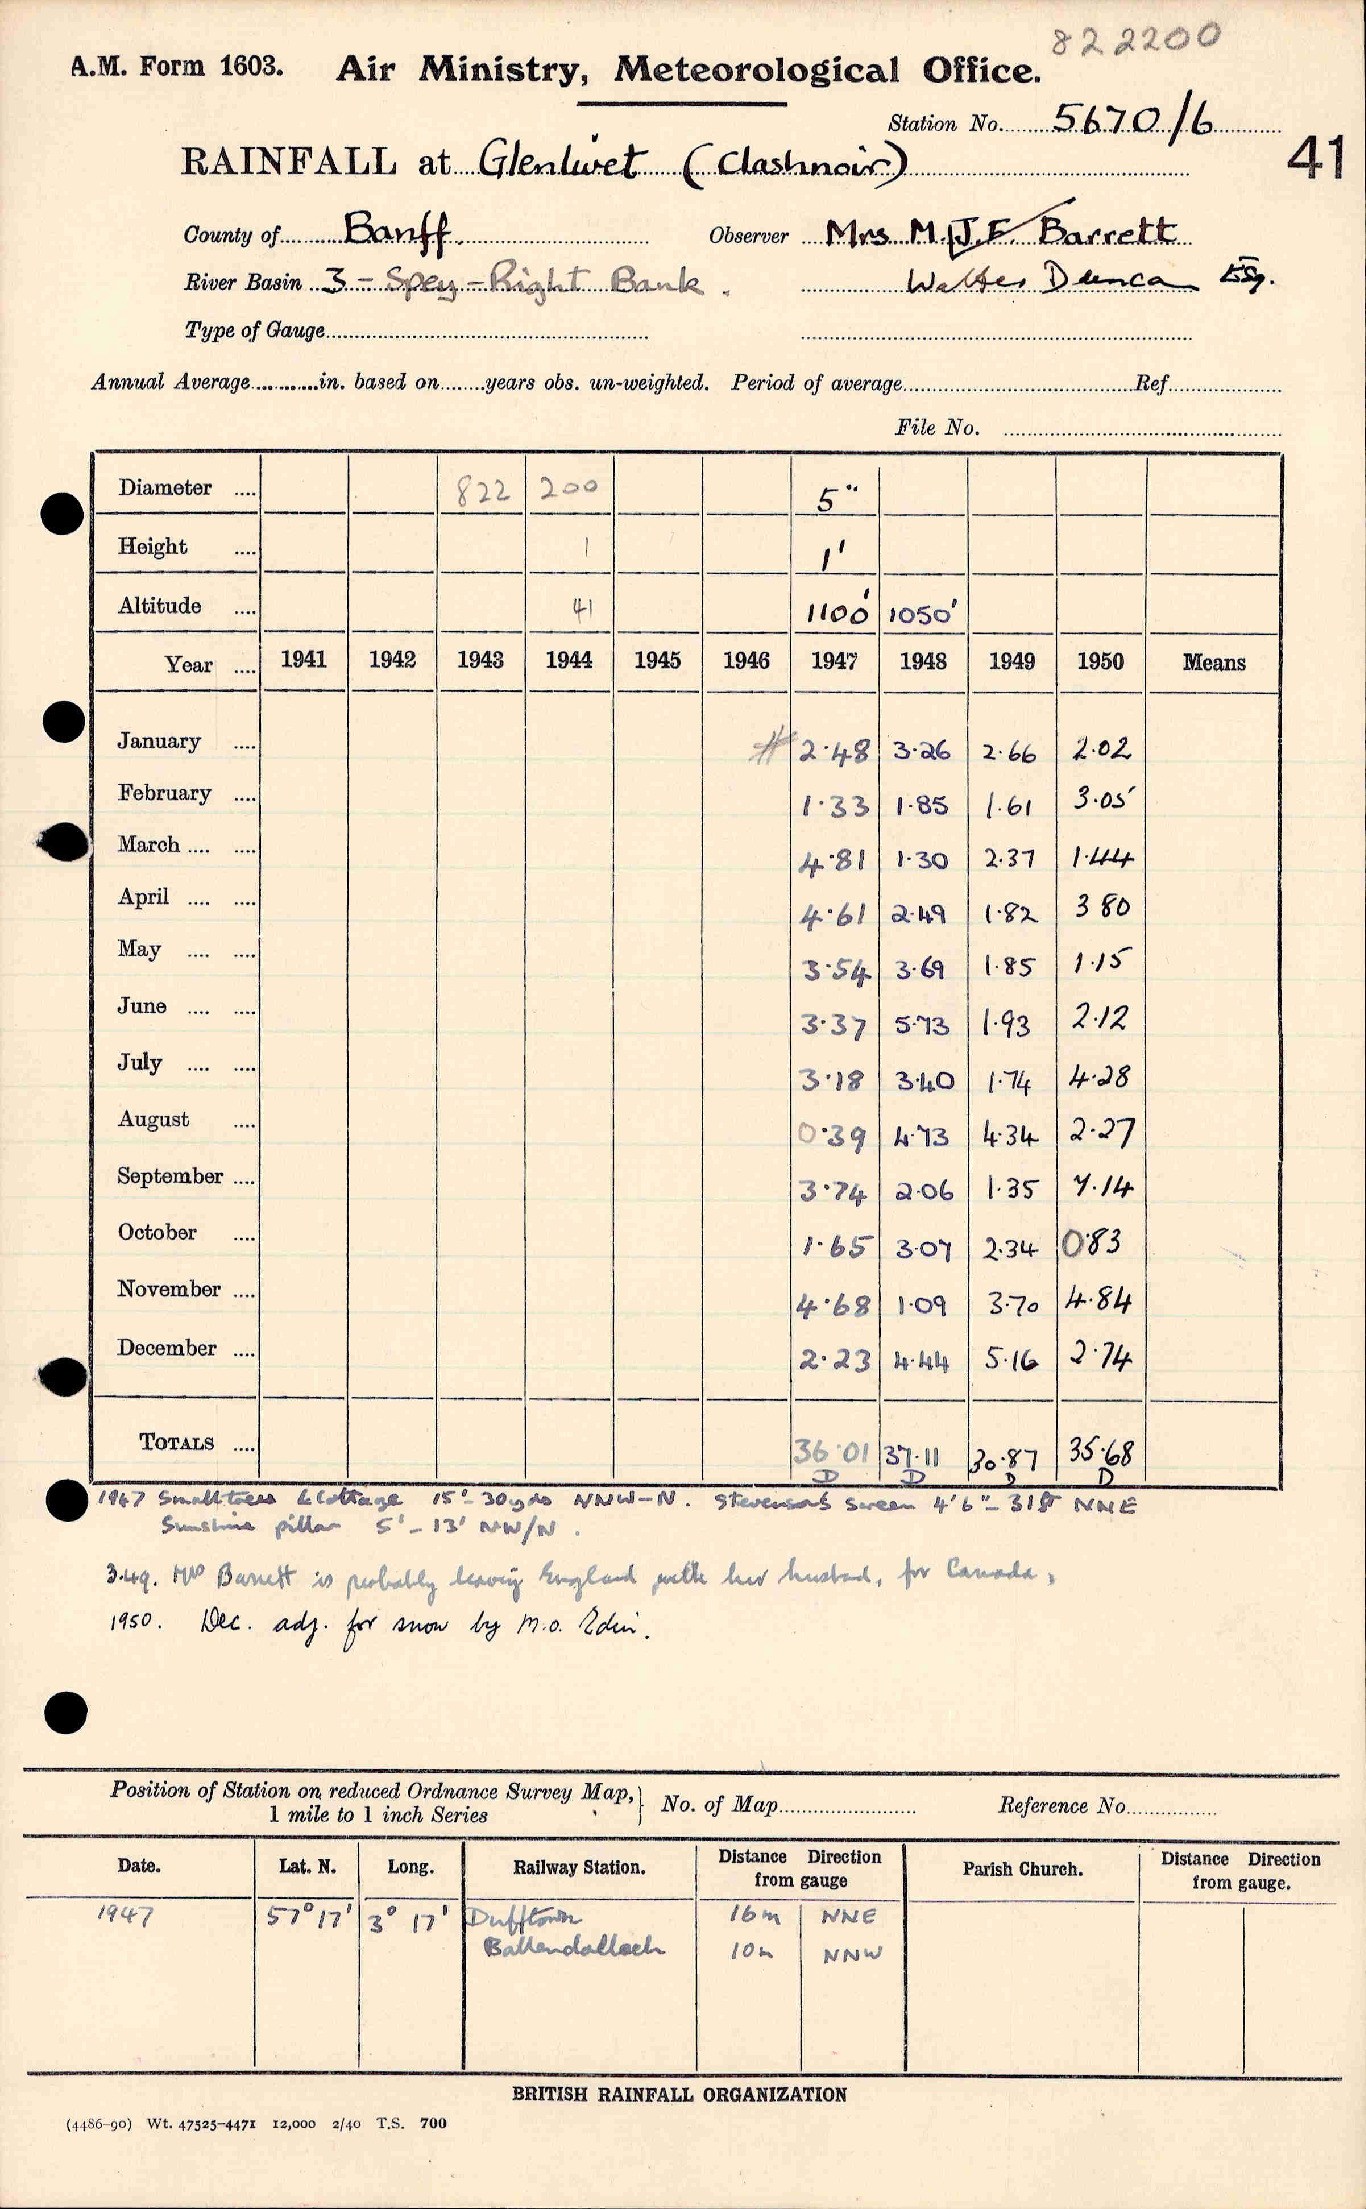 822200
A.M. Form 1603. Air Ministry, Meteorological Office.
Station No. 5670/6
41
RAINFALL at Glenlivet (Clashnoir)
County of Banff. Observer Mrs M.J.F. Barrett
River Basin 3 - Spey - Right Bank. Walter Duncan Esq.
Type of Gauge
Annual Average in. based on years obs. un-weighted. Period of average Ref
File No.
Diameter 822 200 5"
Height 1 1'
Altitude 41 1100' 1050'
Year 1941 1942 1943 1944 1945 1946 1947 1948 1949 1950 Means
January # 2.48 3.26 2.66 2.02
February 1.33 1.85 1.61 3.05
March 4.81 1.30 2.37 1.44
April 4.61 2.49 1.82 3 80
May 3.54 3.69 1.85 1.15
June 3.37 5.73 1.93 2.12
July 3.18 3.40 1.74 4.28
August 0.39 4.73 4.34 2.27
September 3.74 2.06 1.35 7.14
October 1.65 3.07 2.34 0.83
November 4.68 1.09 3.70 4.84
December 2.23 4.44 5.16 2.74
TOTALS 36.01 37.11 30.87 35.68
D D D D
1947 Small trees & Cottage 15' - 30yds NNW-N. Stevenson's Screen 4'6" - 31ft NNE
Sunshine pillar 5' - 13' NW/N.
3.49. Mrs Barrett is probably leaving England with her husband, for Canada,
1950. Dec. adj. for snow by M.O. Edin.
Position of Station on reduced Ordnance Survey Map,
1 mile to 1 inch Series
No. of Map Reference No.
Date. Lat. N. Long. Railway Station. Distance Direction from gauge Parish Church. Distance Direction from gauge.
1947 57° 17' 3° 17' Dufftown 16m NNE
Ballendalloch 10m NNW
BRITISH RAINFALL ORGANIZATION
(4486-90) Wt. 47525-4471 12,000 2/40 T.S. 700